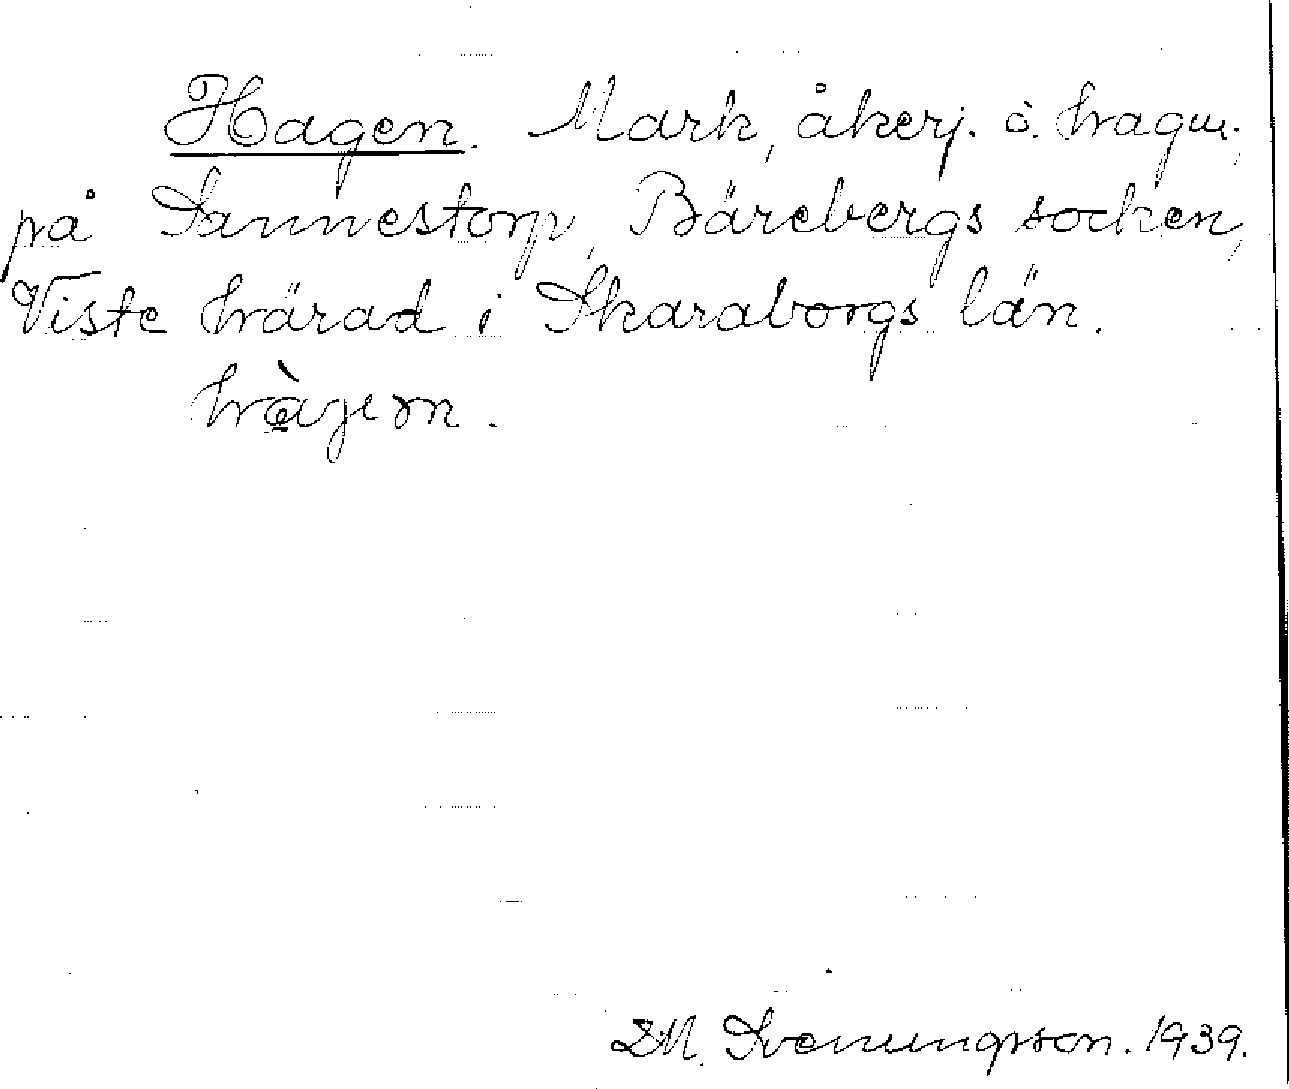 Hagen. Mark, åkerj. o. hagm.,
på Sannestorp, Bärebergs socken,
Viste härad i Skaraborgs län.
hàgen.
D.M. Svenungsson. 1939.